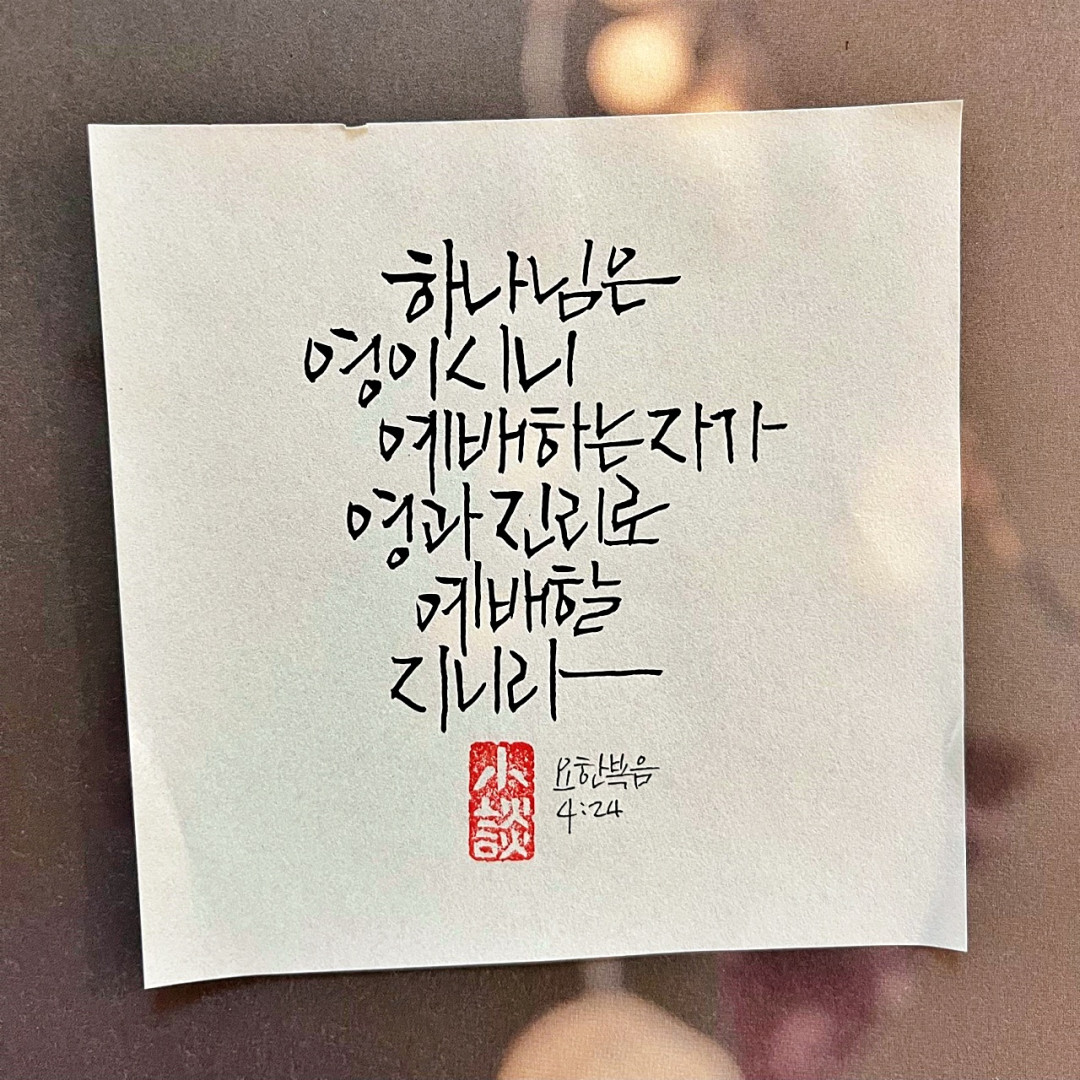 하나님은
영이시니
예배하는자가
영과 진리로
예배할
지니라
小談
요한복음
4:24